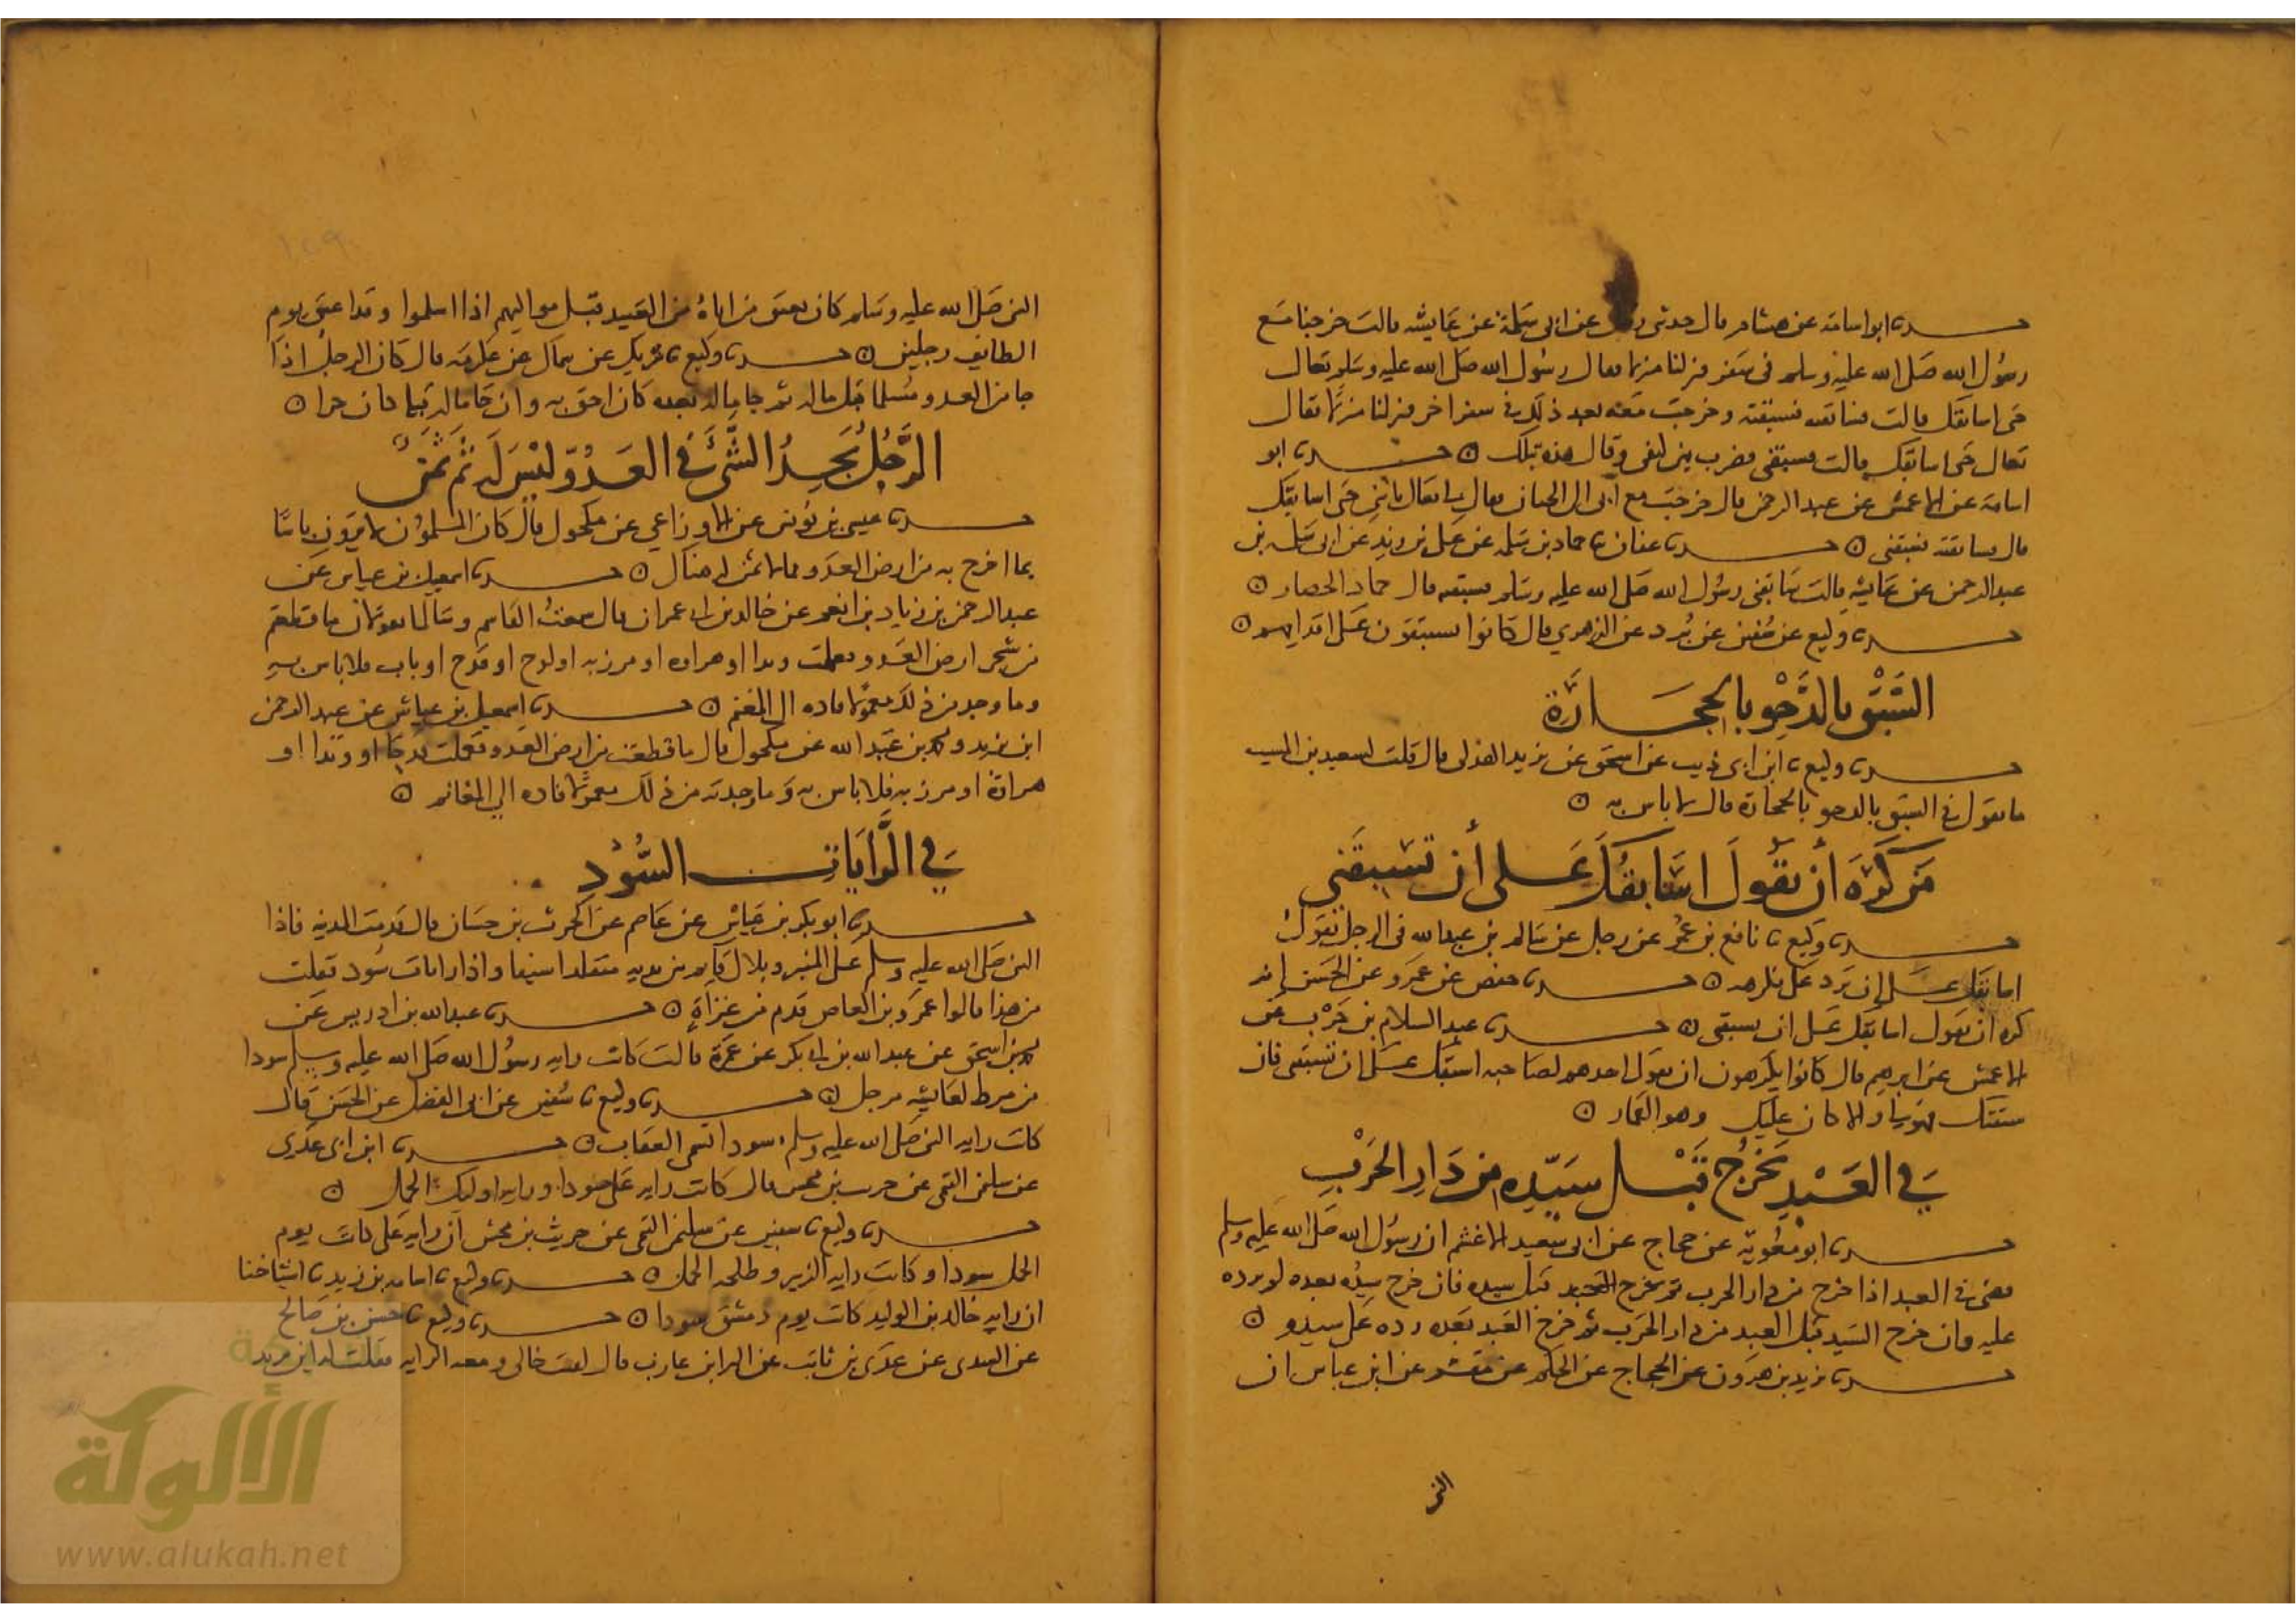 حدثنا ابو اسامة عن هشام قال حدثني رجل عن ابي سلمة عن عايشه قالت خرجنا مع
رسول الله صلى الله عليه وسلم في سفر فنزلنا منزلا فقال رسول الله صلى الله عليه وسلم تعالي
حتى اسابقك قالت فسابقته فسبقته وخرجت معه بعد ذلك في سفر اخر فنزلنا منزلا فقال
تعالي حتى اسابقك قالت فسبقني فضرب بين كتفي وقال هذه بتلك ۞ حدثنا ابو
اسامة عن الاعمش عن عبد الرحمن قال خرجت مع ابي الى الجبان فقال لي تعال يا بني حتى اسابقك
قال فسابقته فسبقني ۞ حدثنا عفان ثنا حماد بن سلمه عن علي بن زيد عن ابي سلمه بن
عبد الرحمن عن عايشه قالت سابقني رسول الله صلى الله عليه وسلم فسبقته قال حماد الحضار ۞
حدثنا وكيع عن سفين عن برد عن الزهري قال كانوا يستبقون على اقدامهم ۞
السبق بالدحو بالحجارة
حدثنا وكيع ثنا ابن ابي ذيب عن اسحق عن يزيد الهذلي قال قلت لسعيد بن المسيب
ما تقول في السبق بالدحو بالحجارة قال لا باس به ۞
من كره أن يقول اسابقك على أن تسبقني
حدثنا وكيع ثنا نافع بن عمر عن رجل عن سالم بن عبد الله في الرجل يقول
اسابقك على ان ترد علي فكرهه ۞ حدثنا حفص عن عمرو عن الحسن انه
كره ان يقول اسابقك على ان تسبقني ۞ حدثنا عبد السلام بن حرب عن
الاعمش عن ابرهيم قال كانوا يكرهون ان يقول احدهم لصاحبه اسبقك على ان تسبقني فان
سبقتك فهو لي والا كان عليك وهو القمار ۞
في العبد يخرج قبل سيده من دار الحرب
حدثنا ابو معوية عن حجاج عن ابي سعيد الاعثم ان رسول الله صلى الله عليه وسلم
قضى في العبد اذا خرج من دار الحرب قبل سيده فان خرج سيده بعده لم يرده
عليه وان خرج السيد قبل العبد من دار الحرب ثم خرج العبد بعده رده على سيده ۞
حدثنا يزيد بن هرون عن الحجاج عن الحكم عن مقسم عن ابن عباس ان
النبي
النبي صلى الله عليه وسلم كان يعتق من اتاه من العبيد قبل مواليهم اذا اسلموا وقد اعتق يوم
الطايف رجلين ۞ حدثنا وكيع ثنا شريك عن سماك عن عكرمة قال كان الرجل اذا
جا من العدو مسلما قبل ماله ثم جا ماله بعده كان احق به وان جا ماله قبله كان حرا ۞
الرجل يجد الشيء في العدو ليس له ثم ثمن
حدثنا عيسى بن يونس عن الاوزاعي عن مكحول قال كان المسلمون لا يرون باسا
بما اخرج به من ارض العدو مما لا ثمن له هناك ۞ حدثنا اسمعيل بن عياس عن
عبد الرحمن بن زياد بن انعم عن خالد بن ابي عمران قال سمعت القاسم وسالما يقولان ما قطعتم
من شجر ارض العدو فعملت وتدا او هراوه او مرزبه او لوح او قدح او باب فلا باس به
وما وجد من ذلك معمولا فاده الى المغنم ۞ حدثنا اسمعيل بن عياش عن عبد الرحمن
ابن يزيد ومحمد بن عبد الله عن مكحول قال ما قطعت من ارض العدو فعملت قدحا او وتدا او
هراوة او مرزبه فلا باس به وما وجدته من ذلك معمولا فاده الى المغانم ۞
في الرايات السود
حدثنا ابو بكر بن عياش عن عاصم عن الحرث بن حسان قال قدمت المدينه فاذا
النبي صلى الله عليه وسلم على المنبر وبلال قايم بين يديه متقلدا سيفا واذا رايات سود فقلت
من هذا قالوا عمرو بن العاص قدم من غزاة ۞ حدثنا عبد الله بن ادريس عن
محمد بن اسحق عن عبد الله بن ابي بكر عن عمرة قالت كانت رايه رسول الله صلى الله عليه وسلم سودا
من مرط لعايشه مرجل ۞ حدثنا وكيع ثنا سفين عن ابي الفضل عن الحسن قال
كانت رايه النبي صلى الله عليه وسلم سودا تسمى العقاب ۞ حدثنا ابن ابي عدي
عن سليمن التيمي عن حريث بن مخش قال كانت رايه علي سودا ورايه اوليك الجمل ۞
حدثنا وكيع ثنا سفين عن سليمن التيمي عن حريث بن مخش ان رايه علي كانت يوم
الجمل سودا وكانت رايه الزبير وطلحه الجمل ۞ حدثنا وكيع ثنا اسامه بن زيد ثنا اشياخنا
ان رايه خالد بن الوليد كانت يوم دمشق سودا ۞ حدثنا وكيع ثنا حسن بن صالح
عن السدي عن عدي بن ثابت عن البرا بن عازب قال لقيت خالي ومعه الرايه فقلت له اين تريد
الألوكة
www.alukah.net